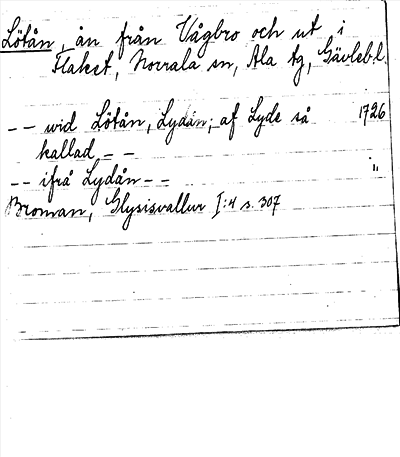 Lötån, ån från Vågbro och ut i
Flaket, Norrala sn, Ala tg, Gävlebl.
-- wid Lötån, Lydån, af Lyde så 1726
kallad --
-- ifrå Lydån -- "
Broman, Glysisvallur I:4 s. 307